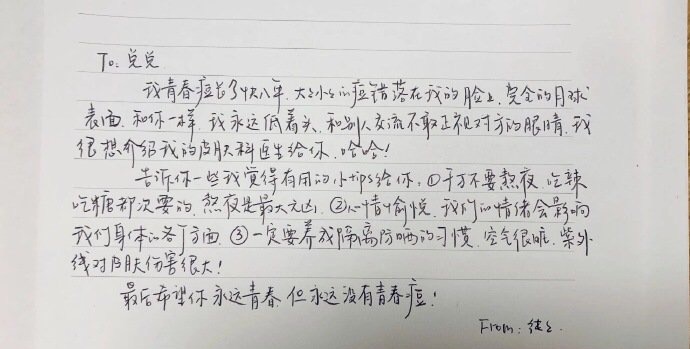 To: 兑兑
我青春痘长了快八年,大大小小的痘错落在我的脸上,完全的月球
表面,和你一样,我永远低着头,和别人交流不敢正视对方的眼睛,我
很想介绍我的皮肤科医生给你,哈哈!
告诉你一些我觉得有用的小tips给你,①千万不要熬夜,吃辣
吃糖都次要的,熬夜是最大元凶,②心情愉悦,我们的情绪会影响
我们身体的各个方面,③一定要养成隔离防晒的习惯,空气很脏,紫外
线对皮肤伤害很大!
最后希望你永远青春,但永远没有青春痘!
From: